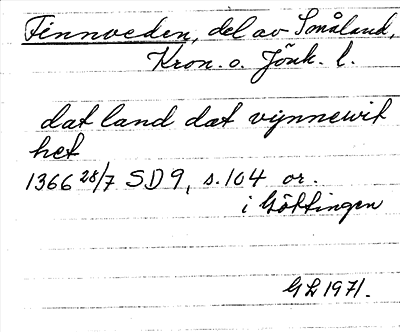 Finnveden, del av Småland,
Kron. o. Jönk. l.
dat land dat vynnewit
het
1366 28/7 SD 9, s. 104 or.
i Göttingen
GL 1971.